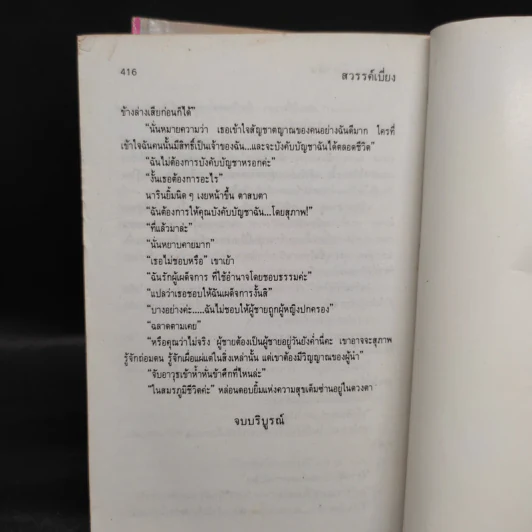 416
สวรรค์เบี่ยง
ข้างล่างเสียก่อนก็ได้"
"นั่นหมายความว่า เธอเข้าใจสัญชาตญาณของคนอย่างฉันดีมาก ใครที่
เข้าใจฉันคนนั้นมีสิทธิ์เป็นเจ้าของฉัน...และจะบังคับบัญชาฉันได้ตลอดชีวิต"
"ฉันไม่ต้องการบังคับบัญชาหรอกค่ะ"
"งั้นเธอต้องการอะไร"
นารินยิ้มนิด ๆ เงยหน้าขึ้น ตาสบตา
"ฉันต้องการให้คุณบังคับบัญชาฉัน...โดยสุภาพ!"
"ที่แล้วมาล่ะ"
"นั่นหยาบคายมาก"
"เธอไม่ชอบหรือ" เขาเย้า
"ฉันรักผู้เผด็จการ ที่ใช้อำนาจโดยชอบธรรมค่ะ"
"แปลว่าเธอชอบให้ฉันเผด็จการงั้นสิ"
"บางอย่างค่ะ.....ฉันไม่ชอบให้ผู้ชายถูกผู้หญิงปกครอง"
"ฉลาดตามเคย"
"หรือคุณว่าไม่จริง ผู้ชายต้องเป็นผู้ชายอยู่วันยังค่ำนี่คะ เขาอาจจะสุภาพ
รู้จักถ่อมตน รู้จักเผื่อแผ่แต่ในสิ่งเหล่านั้น แต่เขาต้องมีวิญญาณของผู้นำ"
"จับอาวุธเข้าห้ำหั่นข้าศึกที่ไหนล่ะ"
"ในสมรภูมิชีวิตค่ะ" หล่อนตอบยิ้มแห่งความสุขเต็มซ่านอยู่ในดวงตา
จบบริบูรณ์